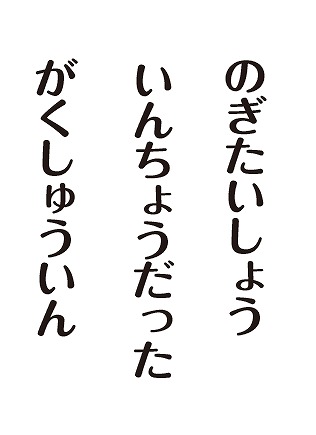 のぎたいしょう
いんちょうだった
がくしゅういん